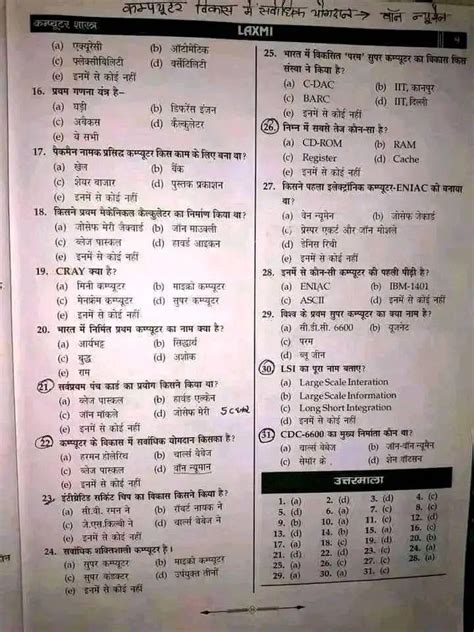 कम्प्यूटर विकास में सर्वाधिक योगदान → वॉन न्यूमैन
कम्प्यूटर शास्त्र
LAXMI
(a) एक्यूरेसी (b) ऑटोमेटिक
(c) फ्लेक्सीबिलिटी (d) वर्सेटिलिटी
(e) इनमें से कोई नहीं
16. प्रथम गणना यंत्र है–
(a) घड़ी (b) डिफरेंस इंजन
(c) अबेकस (d) कैल्कुलेटर
(e) ये सभी
17. पैकमैन नामक प्रसिद्ध कम्प्यूटर किस काम के लिए बना था?
(a) खेल (b) बैंक
(c) शेयर बाजार (d) पुस्तक प्रकाशन
(e) इनमें से कोई नहीं
18. किसने प्रथम मेकेनिकल कैल्कुलेटर का निर्माण किया था?
(a) जोसेफ मेरी जैक्वार्ड (b) जॉन माउक्ली
(c) ब्लेज पास्कल (d) हावर्ड आइकन
(e) इनमें से कोई नहीं
19. CRAY क्या है?
(a) मिनी कम्प्यूटर (b) माइक्रो कम्प्यूटर
(c) मेनफ्रेम कम्प्यूटर (d) सुपर कम्प्यूटर
(e) इनमें से कोई नहीं
20. भारत में निर्मित प्रथम कम्प्यूटर का नाम क्या है?
(a) आर्यभट्ट (b) सिद्धार्थ
(c) बुद्ध (d) अशोक
(e) राम
21. सर्वप्रथम पंच कार्ड का प्रयोग किसने किया था?
(a) ब्लेज पास्कल (b) हावर्ड एल्केन
(c) जॉन मॉकले (d) जोसेफ मेरी
(e) इनमें से कोई नहीं
22. कम्प्यूटर के विकास में सर्वाधिक योगदान किसका है?
(a) हरमन होलेरिथ (b) चार्ल्स बेवेज
(c) ब्लेज पास्कल (d) वॉन न्यूमान
(e) इनमें से कोई नहीं
23. इंटीग्रेटिड सर्किट चिप का विकास किसने किया है?
(a) सी.वी. रमन ने (b) रॉबर्ट नायक ने
(c) जे.एस.किल्बी ने (d) चार्ल्स बेवेज ने
(e) इनमें से कोई नहीं
24. सर्वाधिक शक्तिशाली कम्प्यूटर है।
(a) सुपर कम्प्यूटर (b) माइक्रो कम्प्यूटर
(c) सुपर कंडक्टर (d) उपर्युक्त तीनों
(e) इनमें से कोई नहीं
25. भारत में विकसित 'परम' सुपर कम्प्यूटर का विकास किस
संस्था ने किया है?
(a) C-DAC (b) IIT, कानपुर
(c) BARC (d) IIT, दिल्ली
(e) इनमें से कोई नहीं
26. निम्न में सबसे तेज कौन-सा है?
(a) CD-ROM (b) RAM
(c) Register (d) Cache
(e) इनमें से कोई नहीं
27. किसने पहला इलेक्ट्रॉनिक कम्प्यूटर-ENIAC को बनाया
था?
(a) वेन न्यूमेन (b) जोसेफ जेकार्ड
(c) प्रेस्पर एकर्ट और जॉन मोशले
(d) डेनिस रिची
(e) इनमें से कोई नहीं
28. इनमें से कौन-सी कम्प्यूटर की पहली पीढ़ी है?
(a) ENIAC (b) IBM-1401
(c) ASCII (d) इनमें से कोई नहीं
29. विश्व के प्रथम सुपर कम्प्यूटर का क्या नाम है?
(a) सी.डी.सी. 6600 (b) यूजनेट
(c) परम
(d) ब्लू जीन
30. LSI का पूरा नाम बताए?
(a) Large Scale Interation
(b) Large Scale Information
(c) Long Short Integration
(d) इनमें से कोई नहीं
31. CDC-6600 का मुख्य निर्माता कौन था?
(a) चार्ल्स बेवेज (b) जॉन-वॉन न्यूमैन
(c) सेमॉर क्रे (d) शेन वॉटसन
उत्तरमाला
1. (a) 2. (d) 3. (d) 4. (c)
5. (d) 6. (a) 7. (c) 8. (c)
9. (b) 10. (a) 11. (c) 12. (d)
13. (d) 14. (b) 15. (a) 16. (c)
17. (a) 18. (c) 19. (d) 20. (b)
21. (d) 22. (d) 23. (c) 24. (a)
25. (a) 26. (c) 27. (c) 28. (a)
29. (a) 30. (a) 31. (c)